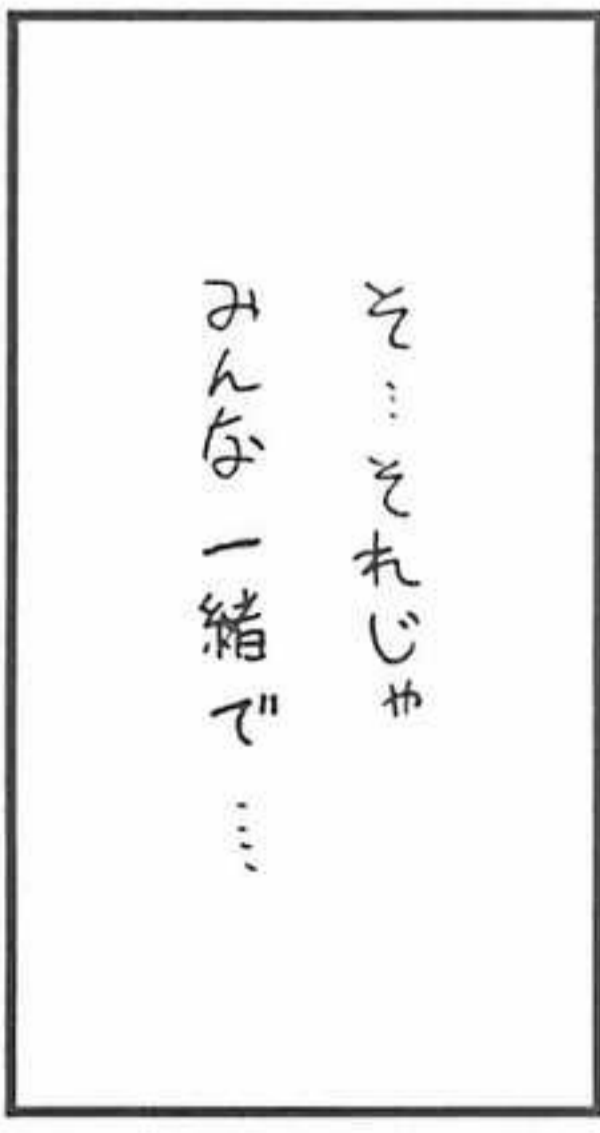 そ…それじゃ
みんな一緒で‥‥